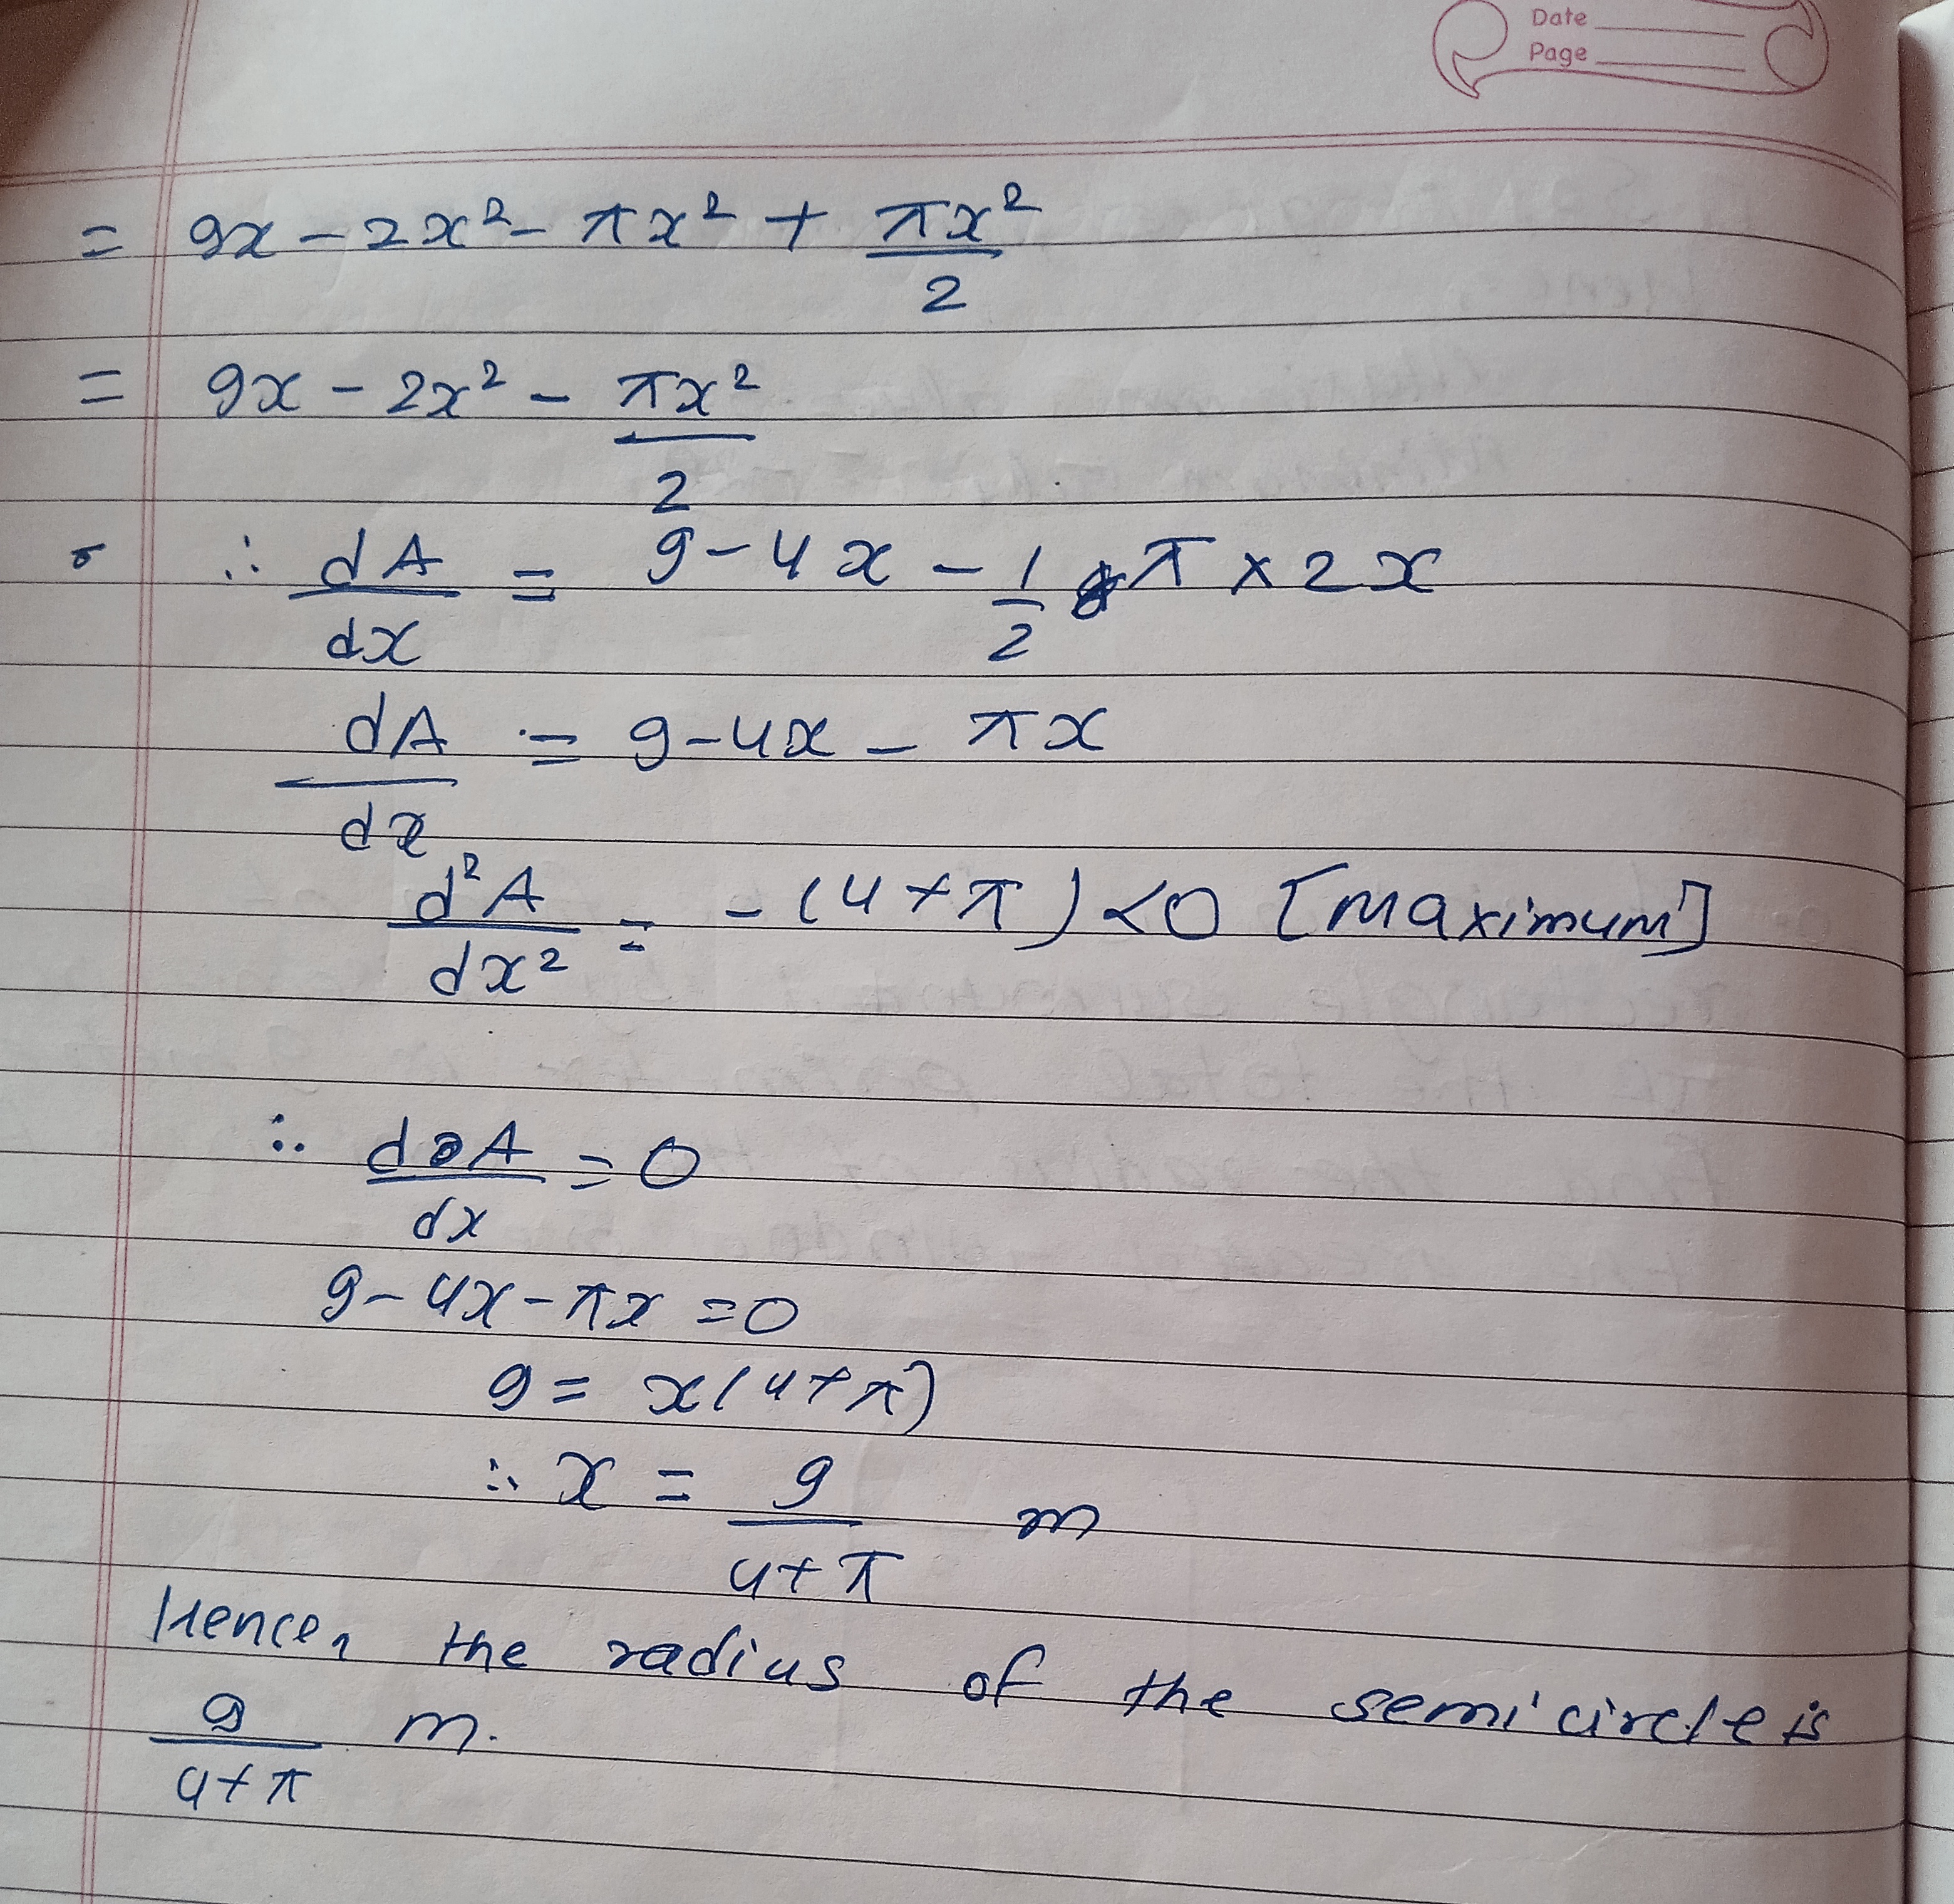 Date
Page
= 9x - 2x² - πx² + πx²/2
= 9x - 2x² - πx²/2
∴ dA/dx = 9 - 4x - 1/2 π × 2x
dA/dx = 9 - 4x - πx
d²A/dx² = - (4 + π) < 0 [Maximum]
∴ dA/dx = 0
9 - 4x - πx = 0
9 = x(4 + π)
∴ x = 9/4+π m
Hence, the radius of the semicircle is
9/4+π m.